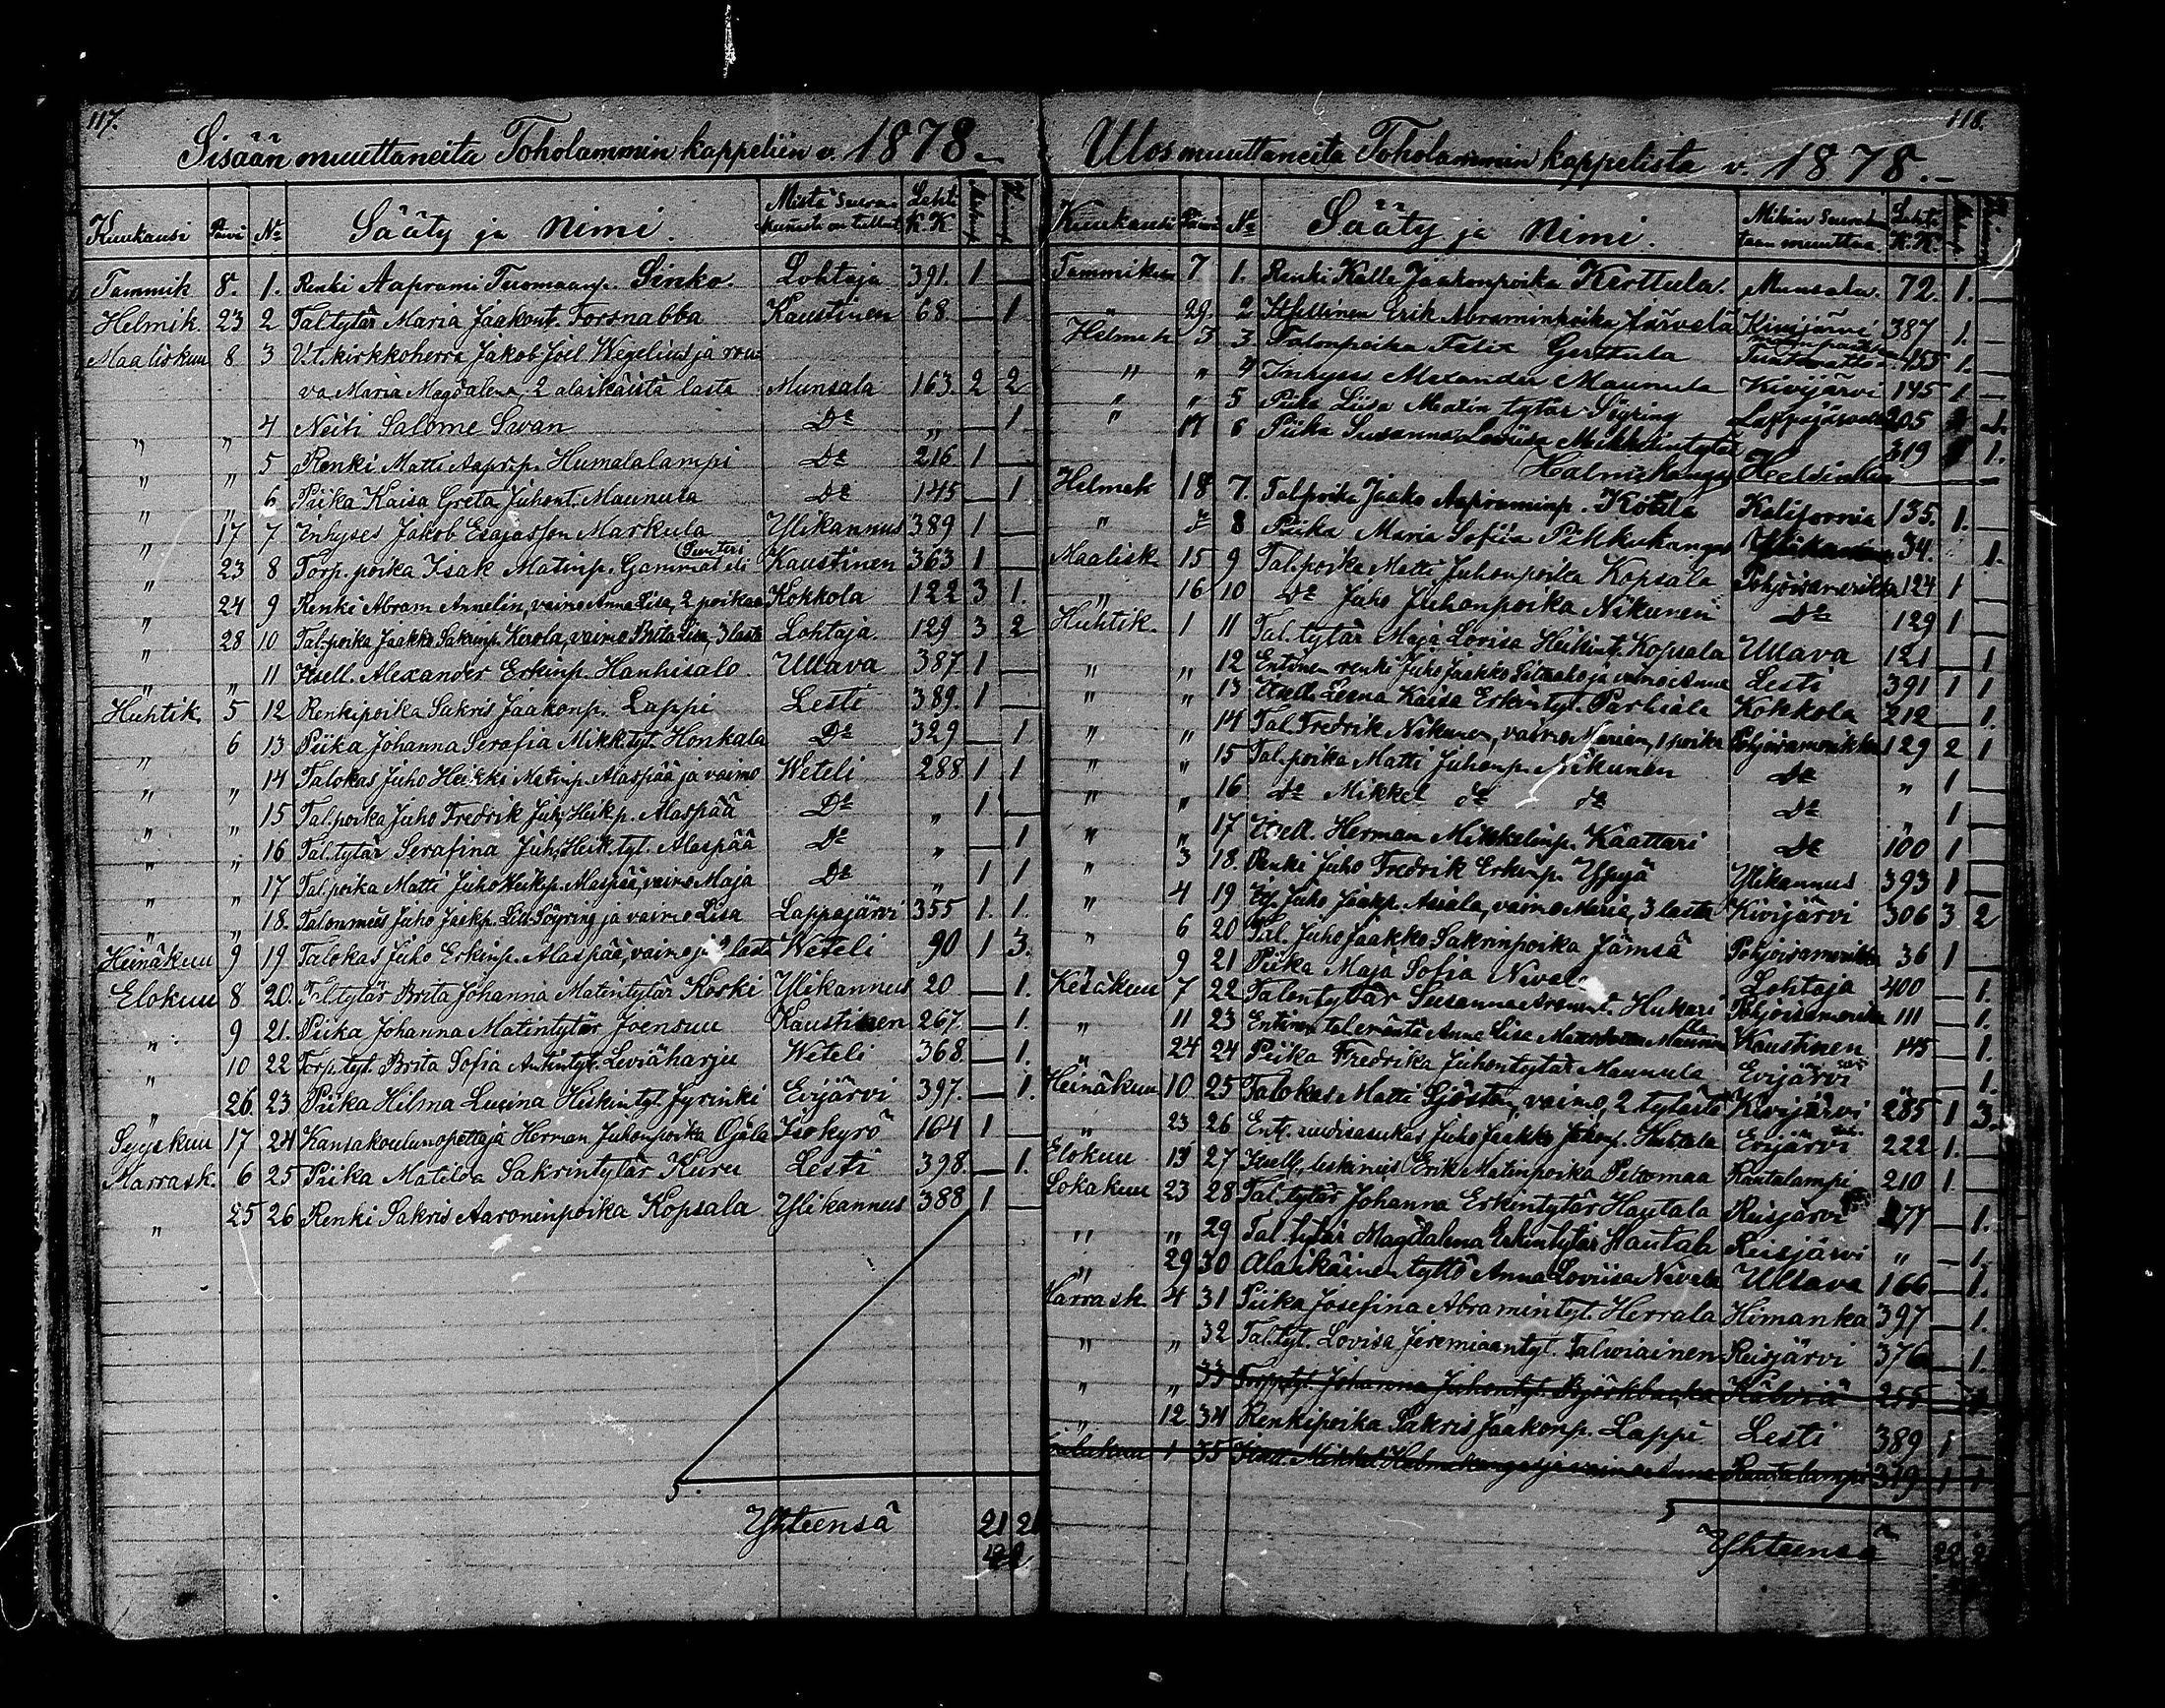 117.
Sisään muuttaneita Toholammin kappeliin v. 1878.
Kuukausi Päivä No Sääty ja Nimi. Mistä Seurakunnasta on tullut Lehti K.K.
Tammik 8. 1. Renki Aaprami Tuomaanp. Sinko. Lohtaja 391. 1 —
Helmik. 23 2 Tal.tytär Maria Jaakont. Forsnabba Kaustinen 68 — 1
Maaliskuu 8 3 V.t. kirkkoherra Jakob Joel Wegelius ja rou-
va Maria Magdalena, 2 alaikäistä lasta Munsala 163. 2 2
" " 4 Neiti Salome Swan Do " — 1
" " 5 Renki Matti Aapr.p. Humalalampi Do 216 1 —
" " 6 Piika Kaisa Greta Juhont. Maunula Do 145 — 1
" 17 7 Inhyses Jakob Esajasson Markula Ylikannus 389 1 —
" 23 8 Torp. poika Isak Matinp. Gammat eli Kaustinen 363 1 —
" 24 9 Renki Abram Annelin, vaimo Anna Lisa, 2 poikaa Kokkola 122 3 1.
" 28 10 Tal.poika Jaakko Sakrinp. Kerola, vaimo Brita Lisa, 3 lasta Lohtaja. 129 3 2
" " 11 Itsell. Alexander Erkinp. Hanhisalo Ullava 387 1 —
Huhtik. 5 12 Renkipoika Sakris Jaakonp. Lappi Lesti 389. 1 —
" 6 13 Piika Johanna Serafia Mikk.tyt. Honkala Do 329 — 1
" " 14 Talokas Juho Heikki Matinp. Alaspää ja vaimo Weteli 288 1 1
" " 15 Tal.poika Juho Fredrik Juh. Heik.p. Alaspää Do " 1 —
" " 16 Tal.tytär Serafina Juh. Heik.tyt. Alaspää Do " — 1
" " 17 Tal.poika Matti Juho Heik.p. Alaspää, vaimo Maja Do " 1 1
" " 18. Talonmies Juho Jaakp. Söyring ja vaimo Lisa Lappajärvi 355 1. 1.
Heinäkuu 9 19 Talokas Juho Erkinp. Alaspää, vaimo ja 2 lasta Weteli 90 1 3.
Elokuu 8 20. Tal.tytär Brita Johanna Matintytär Koski Ylikannus 20 — 1.
" 9 21. Piika Johanna Matintytär Joensuu Kaustinen 267. — 1.
" 10 22 Torp.tyt. Brita Sofia Antintyt. Leviäharju Weteli 368. — 1.
" 26. 23 Piika Hilma Lusina Heikintyt. Jyrinki Evijärvi 397. — 1.
Syyskuu 17 24 Kansakoulunopettaja Herman Juhonpoika Ojala Isokyrö 164 1 —
Marrask. 6 25 Piika Matilda Sakrintytär Kuru Lesti 398. — 1.
" 25 26 Renki Sakris Aaroninpoika Kopsala Ylikannus 388 1 —
Yhteensä 21 21
42
118.
Ulos muuttaneita Toholammin kappelista v. 1878.
Kuukausi Päivä No Sääty ja Nimi. Mihin Seurakuntaan muuttaa Lehti K.K.
Tammikuu 7 1. Renki Kalle Jaakonpoika Kerttula. Munsala. 72. 1. —
" 29. 2 Itsellinen Erik Abraminpoika Järvelä Kivijärvi 387 1. —
Helmik 3 3 Talonpoika Felix Gerttula 155 1. —
" " 4 Inhyses Alexander Maunula Kivijärvi 145 1 —
" " 5 Piika Liisa Matintytär Söyring Lappajärvelle 205 1.
" 17 6 Piika Susanna Loviisa Mikkelintytär
Halmekangas Helsinkiin 319 1.
Helmik 18 7. Tal.poika Jaako Aapraminp. Kotila Kalifornia 135. 1. —
" " 8 Piika Maria Sofiia Pihkukangas Ylikannus 34. 1.
Maalisk. 15 9 Tal.poika Matti Juhonpoika Kopsala Pohjoisamerikka 124 1
" 16 10 Do Juho Juhonpoika Nikunen Do 129 1 —
Huhtik. 1 11 Tal.tytär Maja Lovisa Heikint. Kopsala Ullava 121 — 1
" " 12 Entinen renki Juho Jaakko ja vaimo Anna Lesti 391 1 1
" " 13 Itsell. Leena Kaisa Erkintyt. Parhiala Kokkola 212 — 1.
" " 14 Tal. Fredrik Nikunen, vaimo Maria, 1 poika Pohjoisamerikka 129 2 1
" " 15 Tal.poika Matti Juhonp. Nikunen Do " 1 —
" " 16 do Mikkel do do Do " 1 —
" " 17 Itsell. Herman Mikkelinp. Kaattari Do 100 1
" 3 18. Renki Juho Fredrik Erkinp. Yppyä Ylikannus 393 1 —
" 4 19 Juho Jaakp. Asiala, vaimo Maria, 3 lasta Kivijärvi 306 3 2
" 6 20 Tal. Juho Jaakko Sakrinpoika Jämsä Pohjoisamerikka 36 1
" 9 21 Piika Maja Sofia Nivala Lohtaja 400 — 1.
Kesäkuu 7 22 Talontytär Susanna Hukari Pohjoisamerika 111 — 1.
" 11 23 Entinen tal.emäntä Anna Lisa Maunula Kaustinen 145 — 1.
" 24 24 Piika Fredrika Juhontytär Maunula Evijärvi " — 1.
Heinäkuu 10 25 Talokas Matti Sjösten, vaimo, 2 tytärtä Kivijärvi 285 1 3.
" 23 26 Ent. uudisasukas Juho Jaakko Juhonp. Huhtala Evijärvi 222 1.
Elokuu 19 27 Itsell. leskimies Erik Matinpoika Peltomaa Rautalampi 210 1
Lokakuu 23 28 Tal.tytär Johanna Erkintytär Hautala Reisjärvi 277 — 1.
" " 29 Tal.tytär Magdalena Erkintytär Hautala Reisjärvi " — 1.
" 29 30 Alaikäinen tyttö Anna Loviisa Nivala Ullava 166 — 1.
Marrask. 4 31 Piika Josefina Abramintyt. Herrala Himanka 397 — 1.
" " 32 Tal.tyt. Lovisa Jeremiaantyt. Talwiainen Reisjärvi 376 — 1.
" " 33 Torp.tyt. Johanna Juhontyt. Björkbacka Kälviä 255 — 1.
" 12 34 Renkipoika Sakris Jaakonp. Lappi Lesti 389 1 —
Joulukuu 1 35 Itsell. Mikkel Halmekangas ja vaimo Anna Rautalampi 319 1 1
Yhteensä 22